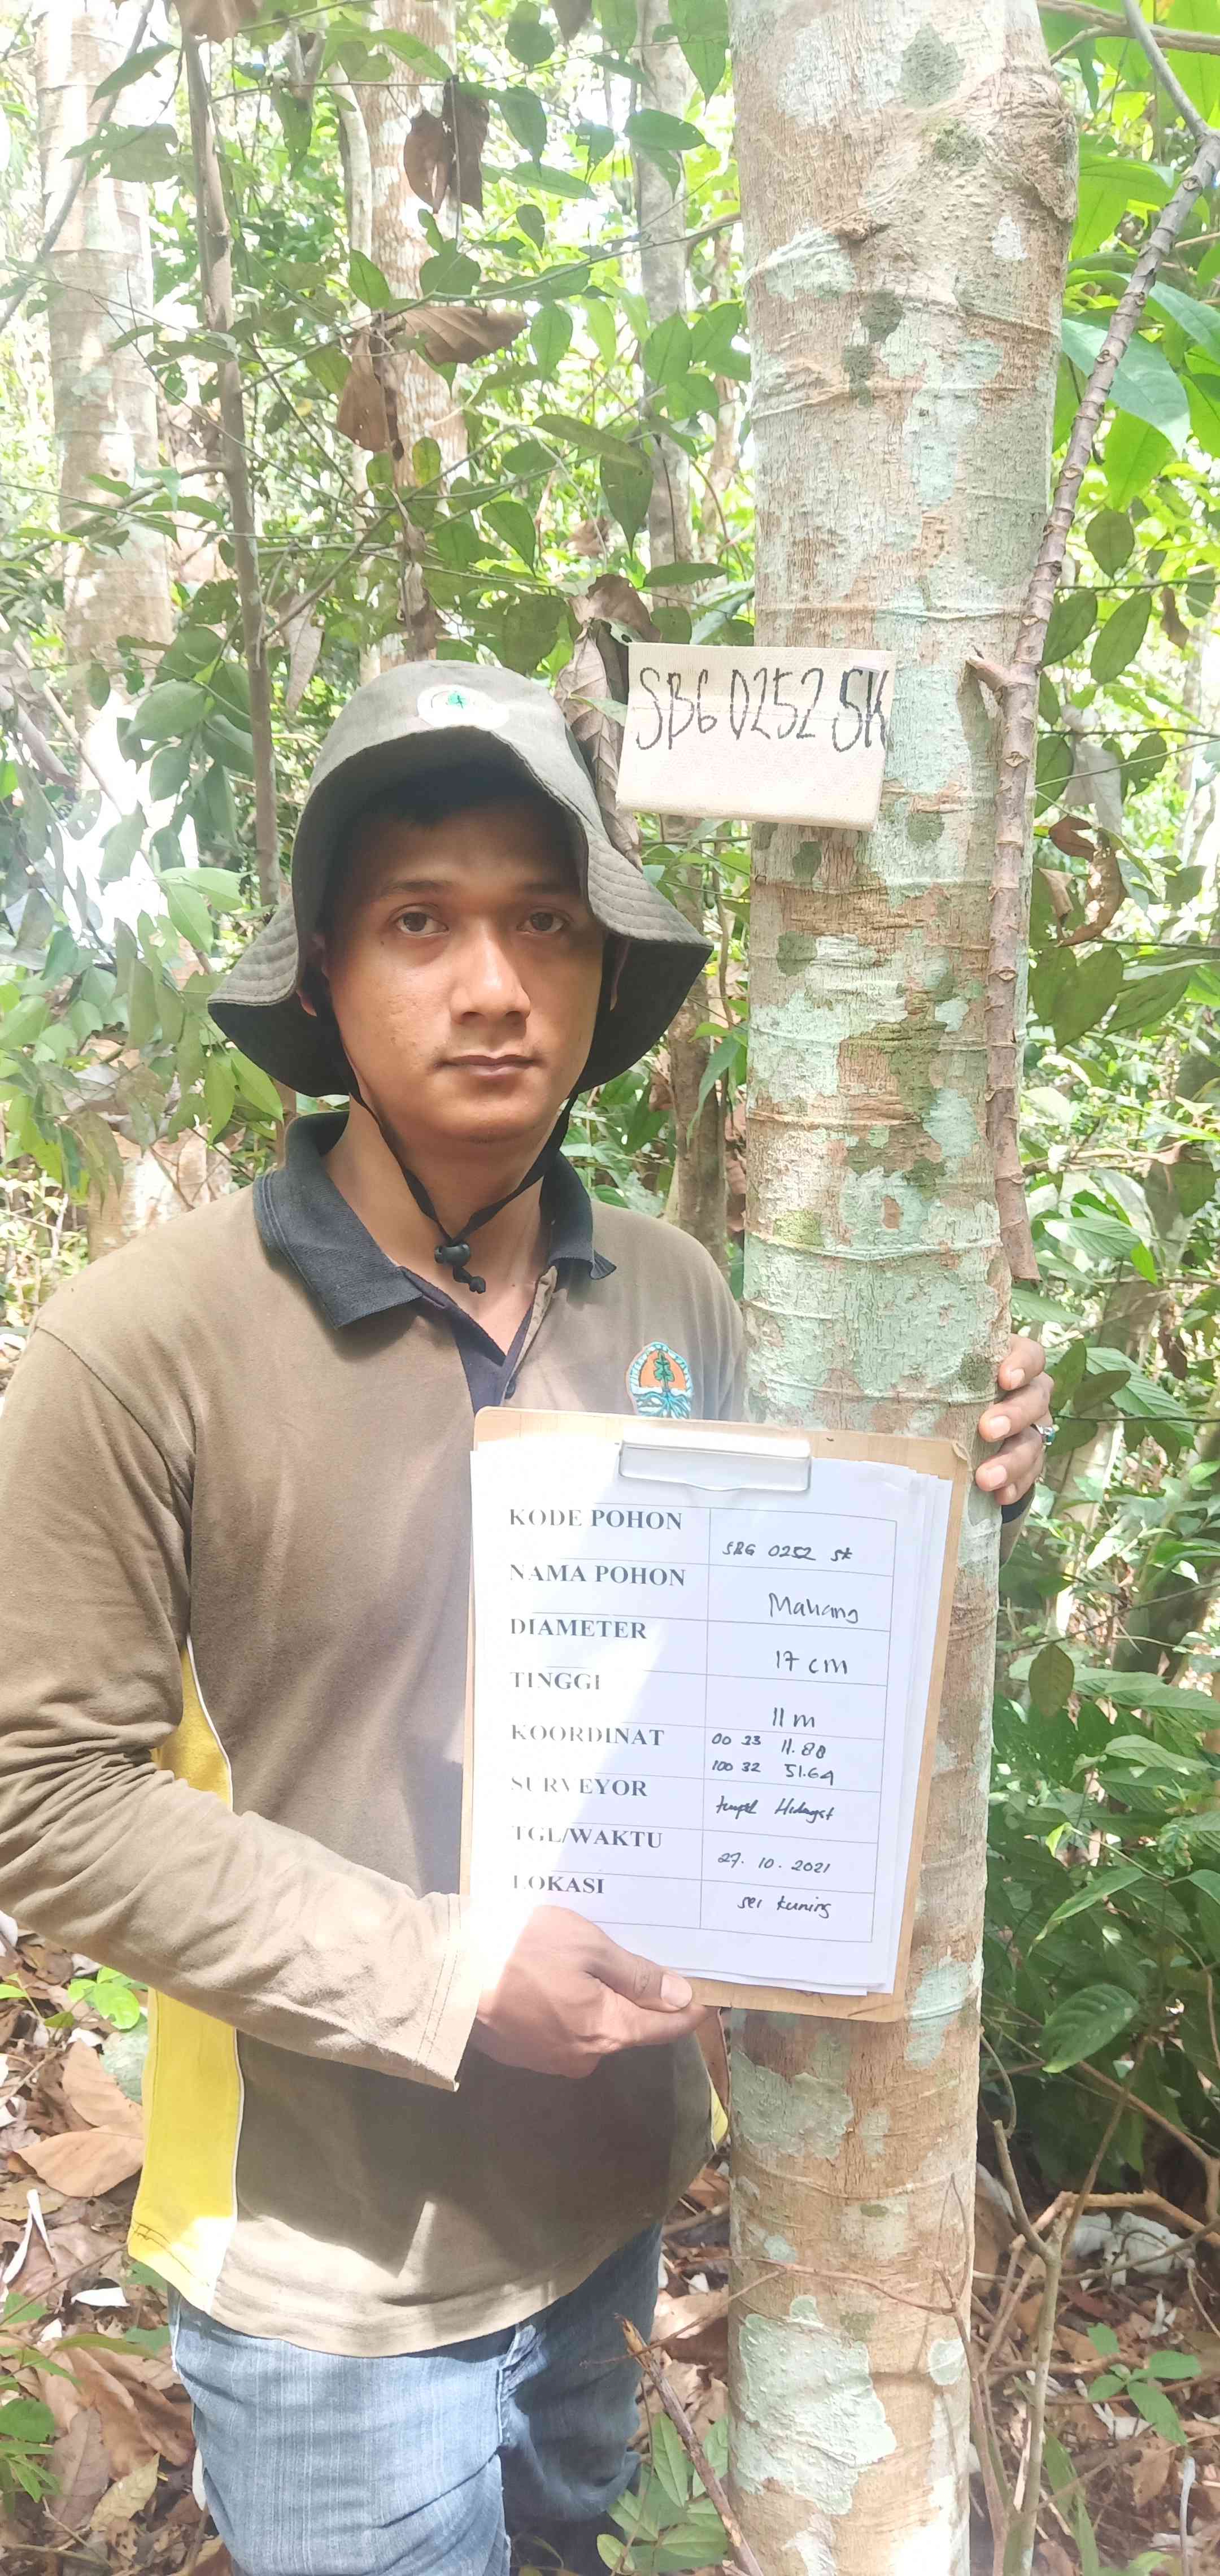 SBG 0252 SK
KODE POHON SBG 0252 SK
NAMA POHON Mahang
DIAMETER 17 cm
TINGGI 11 m
KOORDINAT 00 23 11.88
100 32 51.64
SURVEYOR Hidayat
TGL/WAKTU 27. 10. 2021
LOKASI sei kuning